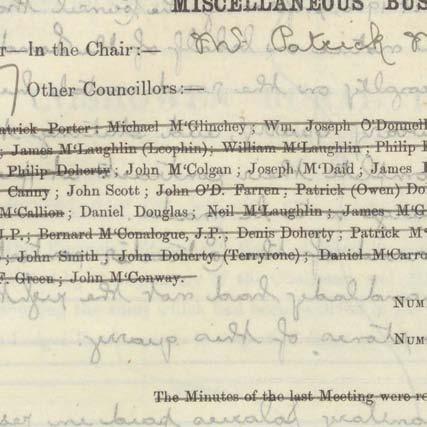 MISCELLANEOUS BUS
r—In the Chair:— Mr Patrick
Other Councillors:—
atrick Porter; Michael M'Glinchey; Wm. Joseph O'Donnell
; James M'Laughlin (Lcophin); William M'Laughlin; Philip
Philip Doherty; John M'Colgan; Joseph M'Daid; James
Canny; John Scott; John O'D. Farren; Patrick (Owen) Do
M'Callion; Daniel Douglas; Neil M'Laughlin; James M'G
J.P.; Bernard M'Conalogue, J.P.; Denis Doherty; Patrick M'
; John Smith; John Doherty (Terryrone); Daniel M'Carro
F. Green; John M'Conway.
NUM
NUM
The Minutes of the last Meeting were re